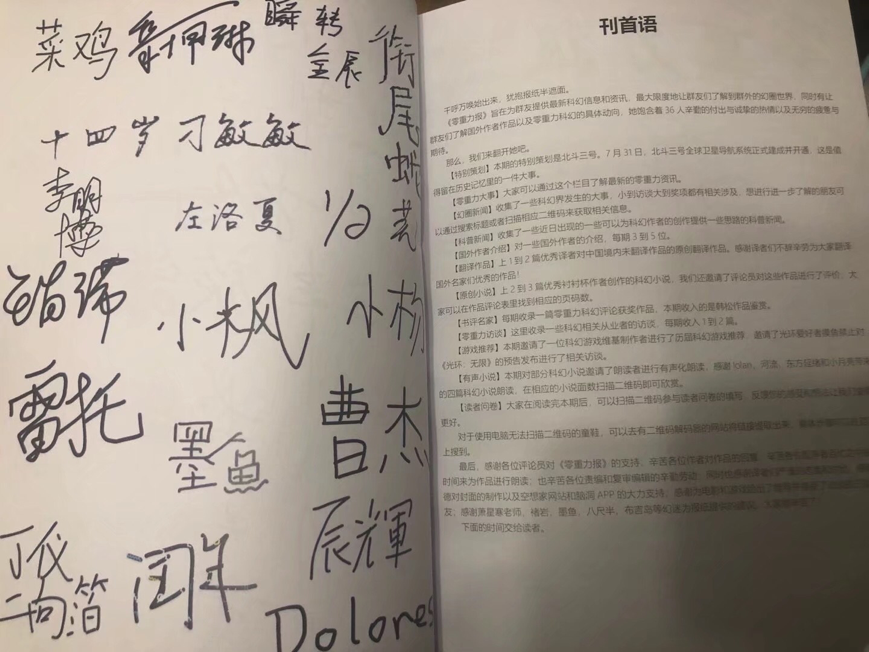 菜鸡
瞬转
金辰
衔尾蛇
十四岁
刁敏敏
李明
左洛夏
1/2
小枫
小杨
雷托
墨鱼
曹杰
辰輝
丁伐
二向箔
闰年
Dolores
刊首语
千呼万唤始出来，犹抱报纸半遮面。
《零重力报》旨在为群友提供最新科幻信息和资讯，最大限度地让群友们了解到群外的幻圈世界，同时有让
群友们了解国外作者作品以及零重力科幻的具体动向，她饱含着 36 人辛勤的付出与诚挚的热情以及无穷的疲惫与
期待。
那么，我们来翻开她吧。
【特别策划】本期的特别策划是北斗三号。7 月 31 日，北斗三号全球卫星导航系统正式建成并开通，这是值
得留在历史记忆里的一件大事。
【零重力大事】大家可以通过这个栏目了解最新的零重力资讯。
【幻圈新闻】收集了一些科幻界发生的大事，小到访谈大到奖项都有相关涉及，想进行进一步了解的朋友可
以通过搜索标题或者扫描相应二维码来获取相关信息。
【科普新闻】收集了一些近日出现的一些可以为科幻作者的创作提供一些思路的科普新闻。
【国外作者介绍】对一些国外作者的介绍，每期 3 到 5 位。
【翻译作品】上 1 到 2 篇优秀译者对中国境内未翻译作品的原创翻译作品。感谢译者们不辞辛劳为大家翻译
国外名家们优秀的作品！
【原创小说】上 2 到 3 篇优秀衬衬杯作者创作的科幻小说，我们还邀请了评论员对这些作品进行了评价，大
家可以在作品评论表里找到相应的页码数。
【书评名家】每期收录一篇零重力科幻评论获奖作品，本期收入的是韩松作品鉴赏。
【零重力访谈】这里收录一些科幻相关从业者的访谈，每期收入 1 到 2 篇。
【游戏推荐】本期邀请了一位科幻游戏维基制作者进行了历届科幻游戏推荐，邀请了光环爱好者重鱼禁止对
《光环：无限》的预告发布进行了相关访谈。
【有声小说】本期对部分科幻小说邀请了朗读者进行有声化朗读，感谢
的四篇科幻小说朗读，在相应的小说面数扫描二维码即可欣赏。
【读者问卷】大家在阅读完本期后，可以扫描二维码参与读者问卷的填写，
更好。
对于使用电脑无法扫描二维码的童鞋，可以去有二维码解码器的网站将链接提取出来，
上搜到。
最后，感谢各位评论员对《零重力报》的支持，辛苦各位作者对作品的
时间来为作品进行朗读，也辛苦各位责编和复审编辑的辛勤劳动，
德对封面的制作以及空想家网站和脑洞 APP 的大力支持，
友，感谢萧星寒老师，褚岩、墨鱼，八尺半，布吉岛等幻迷为
下面的时间交给读者。